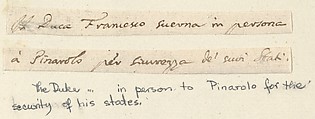 Il Duca Francesco suerna in persona
à Pinarolo per saurezza de' suoi Stati.
The Duke .. in person to Pinarolo for the
security of his states.